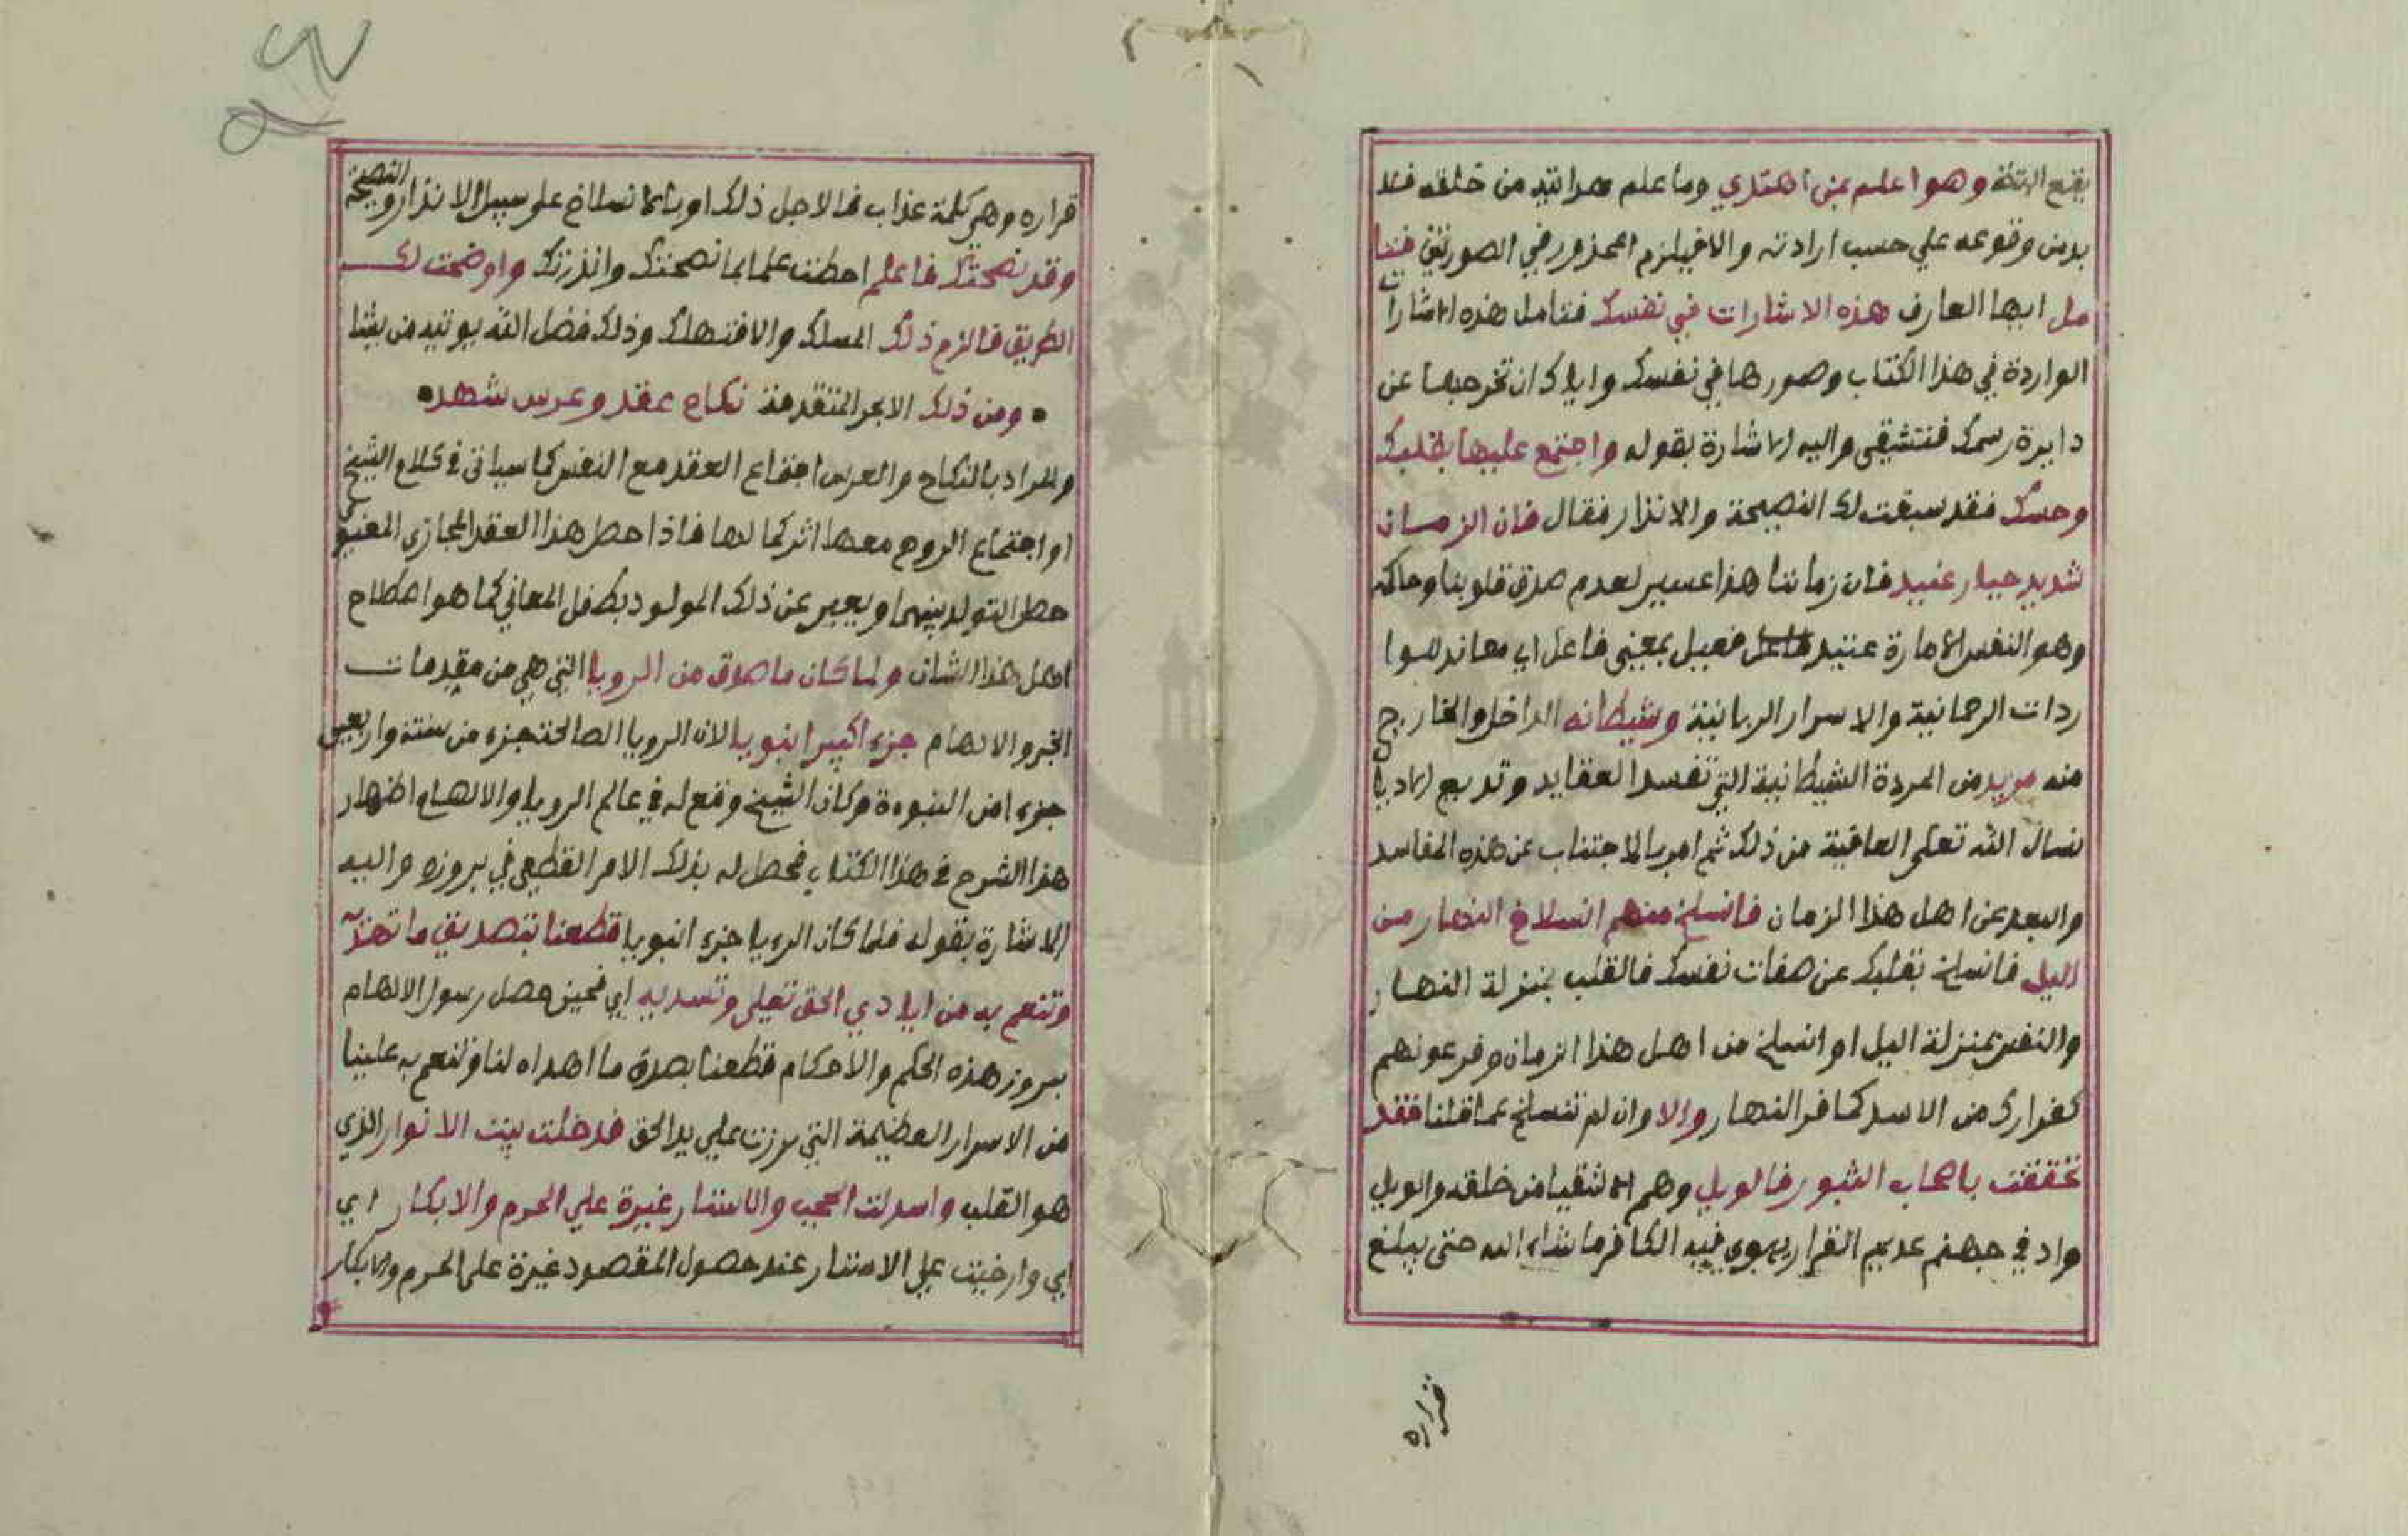 يقع البتة وهو اعلم بمن اهتدي وما علم هدايته من خلقه فلا
بد من وقوعه علي حسب ارادته والا فيلزم المحذور في الصورتين فتا
مل ايها العارف هذه الاشارات في نفسك فتامل هذه الاشارات
الواردة في هذا الكتاب وصورها في نفسك واياك ان تخرجها عن
دايرة رسمك فتشقي واليه الاشارة بقوله واجتمع عليها بقلبك
وحسك فقد سبقت لك النصيحة والانذار فقال فان الزمان
شديد جبار عنيد فان زماننا هذا عسير لعدم صدق قلوبنا وحاكمه
وهو النفس الامارة عنيد فعيل بمعني فاعل اي معاند للوا
ردات الرحمانية والاسرار الربانية وشيطانه الداخل والخارج
منه مريد من المردة الشيطانية التي تفسد العقايد و الاديا
نسال الله تعلي العافية من ذلك ثم امر بالاجتناب عن هذه المفاسد
والبعد عن اهل هذا الزمان فانسلخ منهم انسلاخ النهار من
اليل فانسلخ بقلبك عن صفات نفسك فالقلب بمنزلة النهار
والنفس بمنزلة اليل او انسلخ من اهل هذا الزمان وفر عونهم
كفرارك من الاسد كما فر النهار والا وان لم تنسلخ عما قلنا فقد
تحققت باصحاب الثبور فالويل وهم الاشقيا من خلقه والويل
واد في جهنم عديم القرار يهوي فيه الكافر ما شاء الله حتى يبلغ
قراره
قراره وهي كلمة عذاب فالاجل ذلك اوصا بالانسلاخ علي سبيل الانذار والنصيحة
وقد نصحتك فاعلم احطت علما بما نصحتك وانذرتك واوضحت لك
الطريق فالزم ذلك المسلك والا فتهلك وذلك فضل الله يوتيه من يشا
• ومن ذلك الابحر المتقدمة نكاح عقد وعرس شهد •
والمراد بالنكاح والعرس اجتماع العقد مع النفس كما سياتي في كلام الشيخ
او اجتماع الروح معها اثر كمالها فاذا حصل هذا العقد المجازي المعنوي
حصل التولد بينهما ويعبر عن ذلك المولود بطفل المعاني كما هو اصطلاح
اهل هذا الشان ولما كان ما صدق من الرويا التي هي من مقدمات
الخبر والالهام جزء اكبيرا نبويا لان الرويا الصالحة جزء من ستة واربعين
جزء امن النبوءة وكان الشيخ وقع له في عالم الرويا والالهام اظهار
هذا الشرح في هذا الكتاب فحصل له بذلك الامر القطعي في بروزه واليه
الاشارة بقوله فلما كان الرءيا جزء انبويا قطعنا بتصديق ما تهزأ
وتنعم به من ايادي الحق تعلي وتسديه اي فحين حصل رسول الالهام
ببروز هذه الحكم والاحكام قطعنا بصدق ما اهداه لنا وانعم به علينا
من الاسرار العظيمة التي برزت علي يد الحق فدخلت بيت الانوار الذي
هو القلب واسدلت الحجب والاستار غيرة علي الحرم والابكار اي
اي وارخيت علي الاستار عند حصول المقصود غيرة علي الحرم والابكار